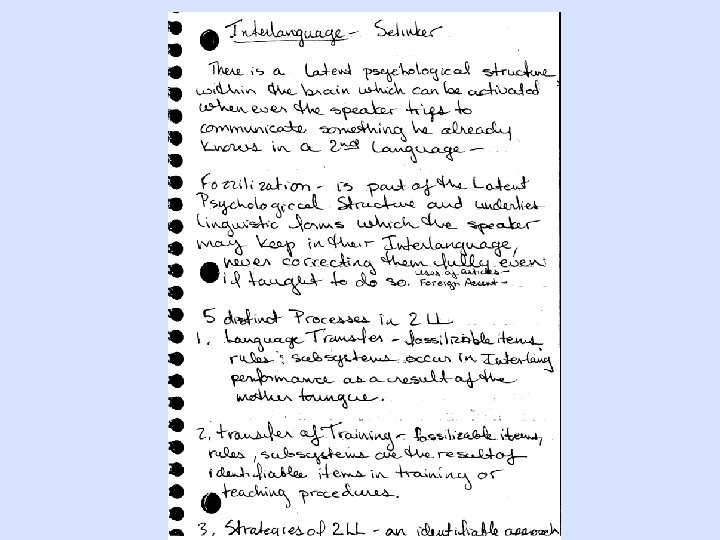 Interlanguage - Selinker
There is a latent psychological structure
within the brain which can be activated
when ever the speaker trys to
communicate something he already
knows in a 2nd language -
Fozzilization - is part of the Latent
Psychological Structure and underlies
linguistic forms which the speaker
may keep in their Interlanguage,
never correcting them fully even
if taught to do so. uses of articles -
Foreign Accent -
5 distinct Processes in 2LL
1. Language Transfer - fossilizable items,
rules; subsystems occur in Interlang
performance as a result of the
mother toungue.
2. transfer of Training - fossilizable items,
rules, subsystems are the result of
identifiable items in training or
teaching procedures.
3. Strategies of 2LL - an identifiable approach